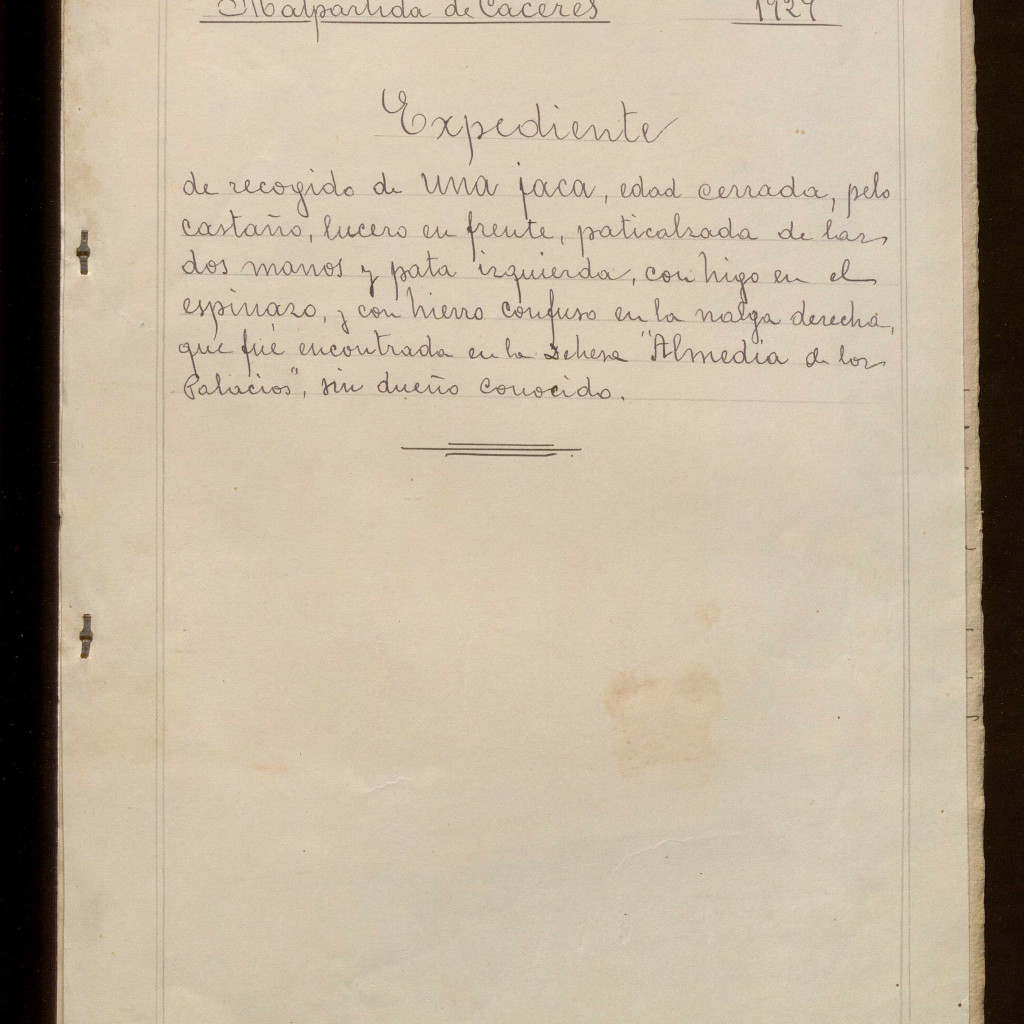 Malpartida de Cáceres 1929
Expediente
de recogido de una jaca, edad cerrada, pelo
castaño, lucero en frente, paticalzada de las
dos manos y pata izquierda, con higo en el
espinazo, y con hierro confuso en la nalga derecha,
que fué encontrada en la dehesa "Almedia de los
Palacios", sin dueño conocido.